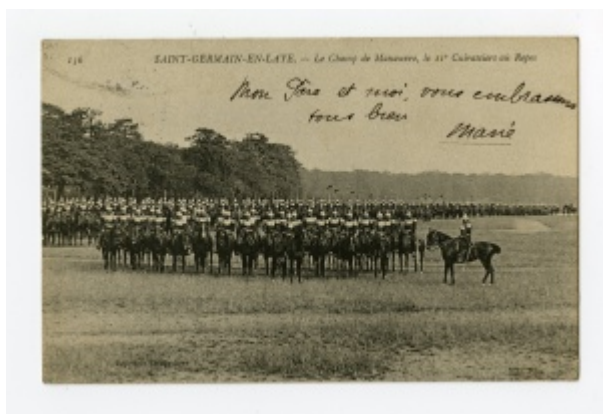 136 SAINT-GERMAIN-EN-LAYE. — Le Champ de Manœuvre, le 11e Cuirassiers au Repos
Mon Père et moi, vous embrassons
tous bien
Marie